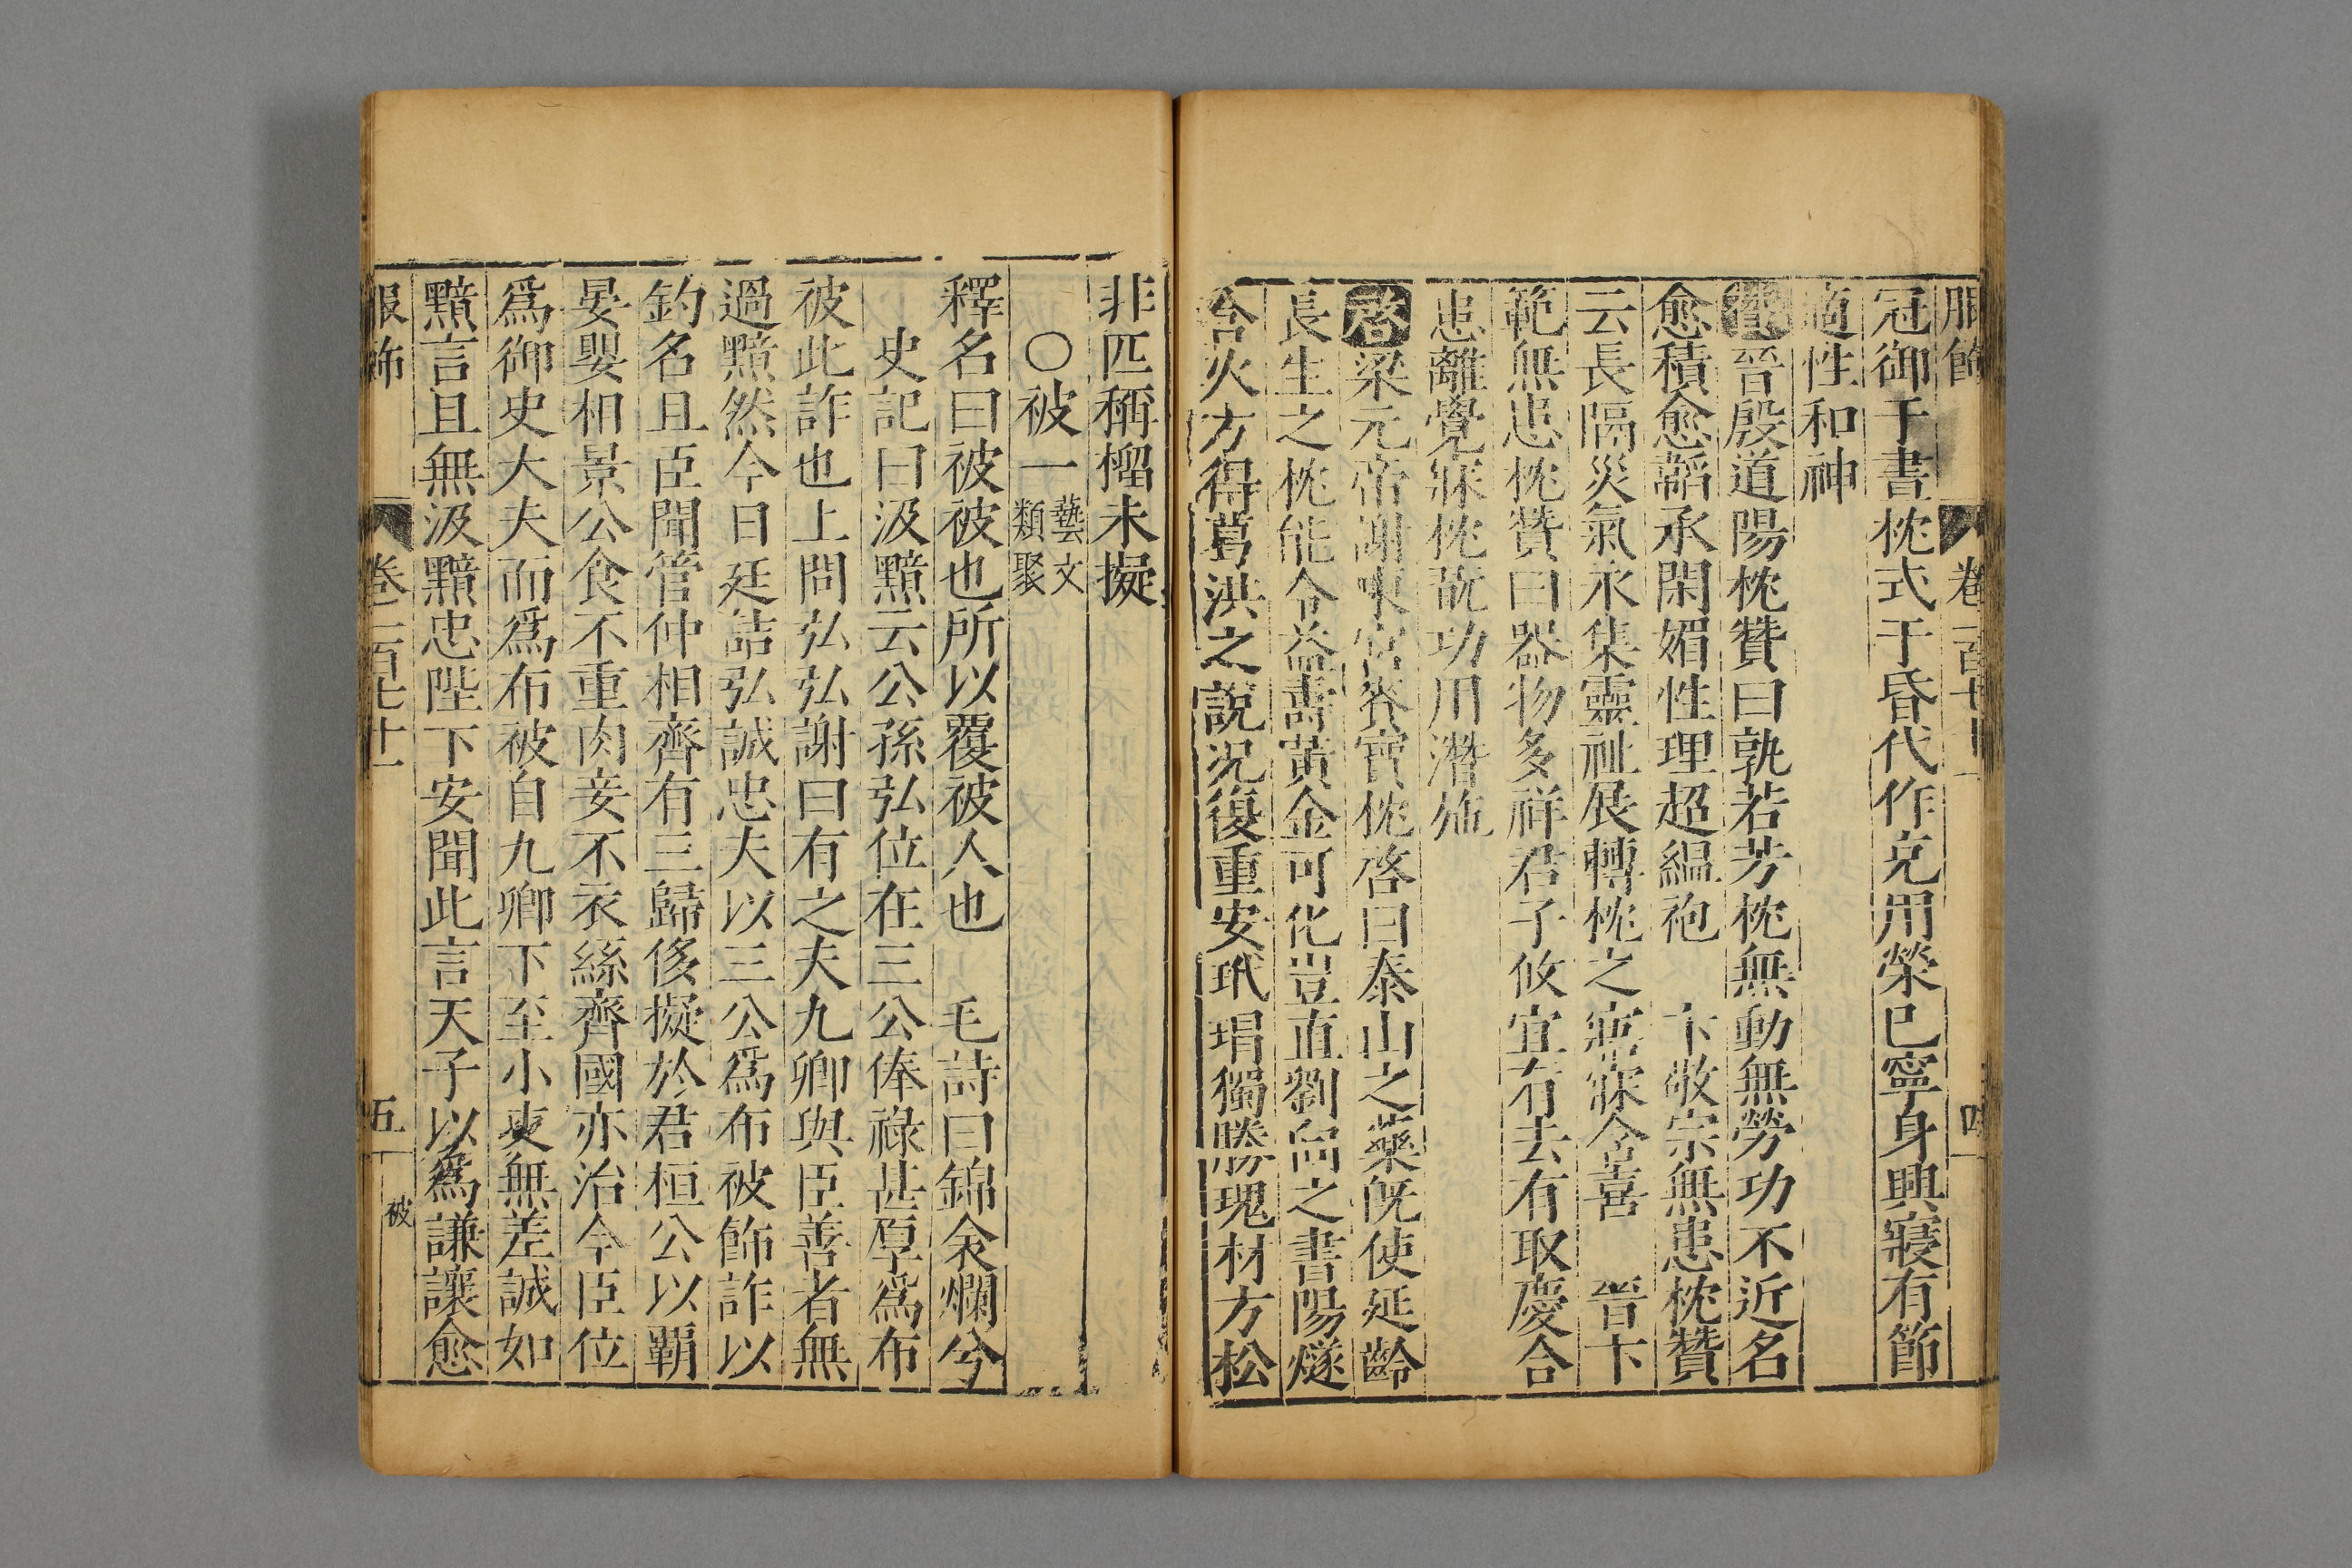 服飾 卷二百七十一 四
冠御于書枕式于昏代作充用榮己寧身興寢有節
適性和神
贊晉殷道陽枕贊曰孰若芳枕無動無勞功不近名
愈積愈韜承閑媚性理超縕袍 卞敬宗無患枕贊
云長隔災氣永集靈祉展轉枕之寤寐含喜 晉卞
範無患枕贊曰器物多祥君子攸宜有去有取慶合
患離覺寐枕翫功用潛施
啓梁元帝謝東宮賚寶枕啓曰泰山之藥旣使延齡
長生之枕能令益壽黃金可化豈直劉向之書陽燧
含火方得葛洪之說況復重安玳瑁獨勝瑰材方松
非匹稱榴未擬
○被一藝文類聚
釋名曰被被也所以覆被人也 毛詩曰錦衾爛兮
史記曰汲黯云公孫弘位在三公俸祿甚厚爲布
被此詐也上問弘弘謝曰有之夫九卿與臣善者無
過黯然今日廷詰弘誠忠夫以三公爲布被飾詐以
釣名且臣聞管仲相齊有三歸侈擬於君桓公以覇
晏嬰相景公食不重肉妾不衣絲齊國亦治今臣位
爲御史大夫而爲布被自九卿下至小吏無差誠如
黯言且無汲黯忠陛下安聞此言天子以爲謙讓愈
服飾 卷二百七十一 五 被